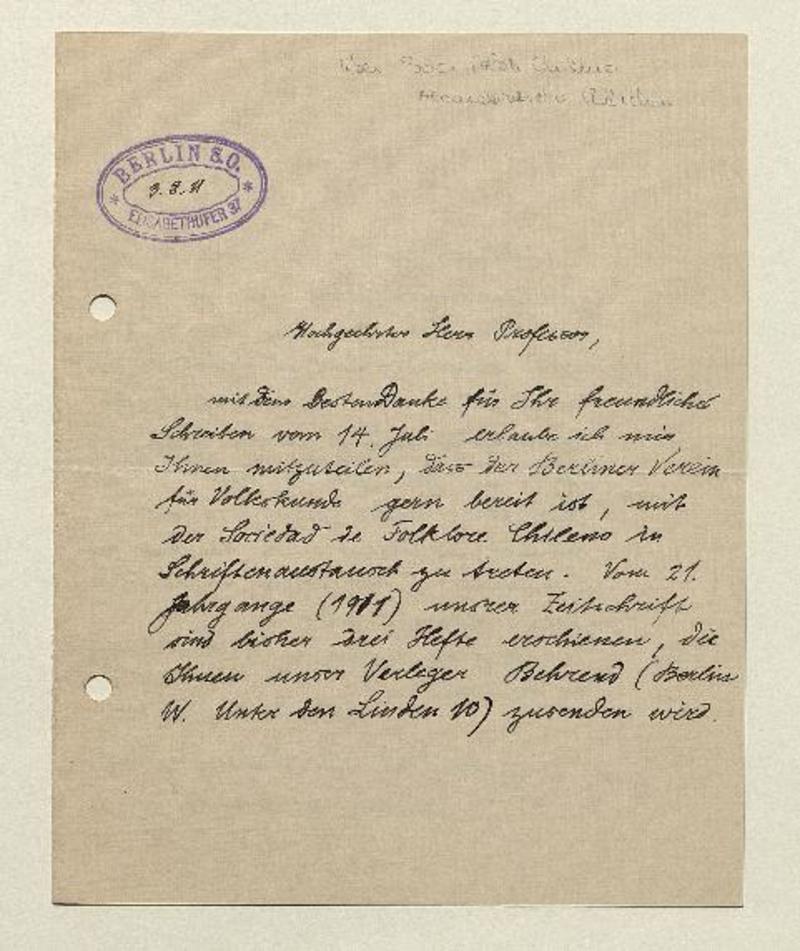 BERLIN S.O.
3. 8. 11
ELISABETHUFER 37
Hochgeehrter Herr Professor,
mit dem besten Danke für Ihr freundliches
Schreiben vom 14. Juli erlaube ich mir
Ihnen mitzuteilen, dass der Berliner Verein
für Volkskunde gern bereit ist, mit
der Sociedad de Folklore Chileno in
Schriftenaustausch zu treten. Vom 21.
Jahrgange (1911) unsrer Zeitschrift
sind bisher drei Hefte erschienen, die
Ihnen unser Verleger Behrend (Berlin
W. Unter den Linden 10) zusenden wird.